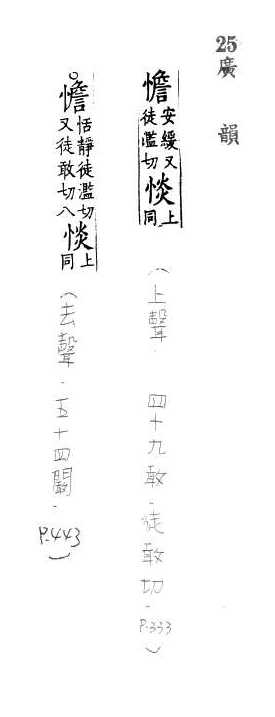 25廣韻
憺安緩又徒濫切惔上同(上聲.四十九敢.徒敢切.P.333)
憺恬靜徒濫切又徒敢切八惔上同(去聲.五十四闞.P.443)